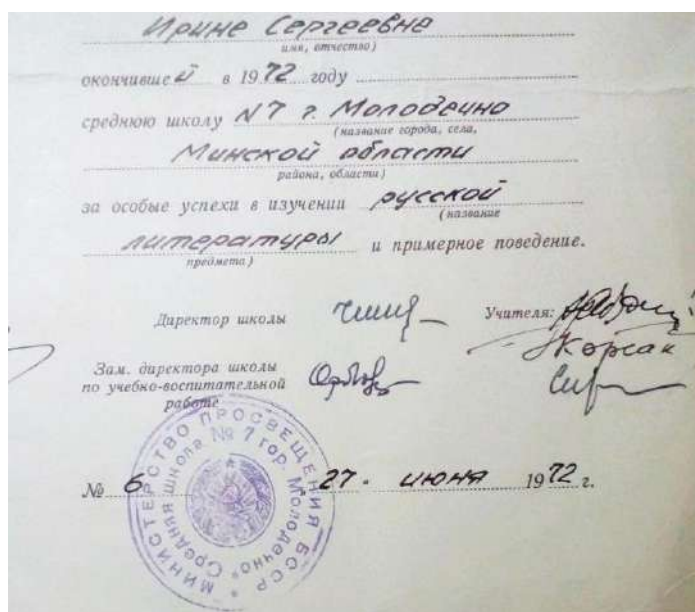 Ирине Сергеевне
имя, отчество)
окончившей в 1972 году
среднюю школу N7 г. Молодечно
(название города, села,
Минской области
района, области)
за особые успехи в изучении русской
(название
литературы и примерное поведение.
предмета)
Директор школы
Учителя:
Корсак
Зам. директора школы
по учебно-воспитательной
работе
№ 6 27. июня 1972 г.
МИНИСТЕРСТВО ПРОСВЕЩЕНИЯ БССР
Средняя школа № 7 гор. Молодечно